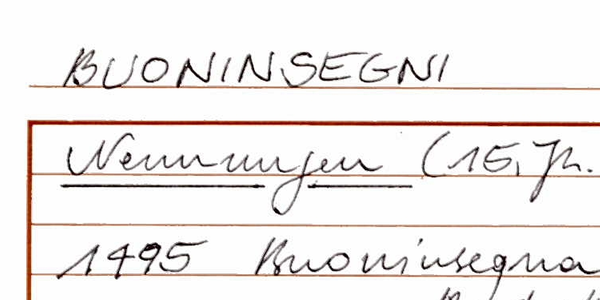 BUONINSEGNI
Nennungen (15. Jh.
1495 Buoninsegna